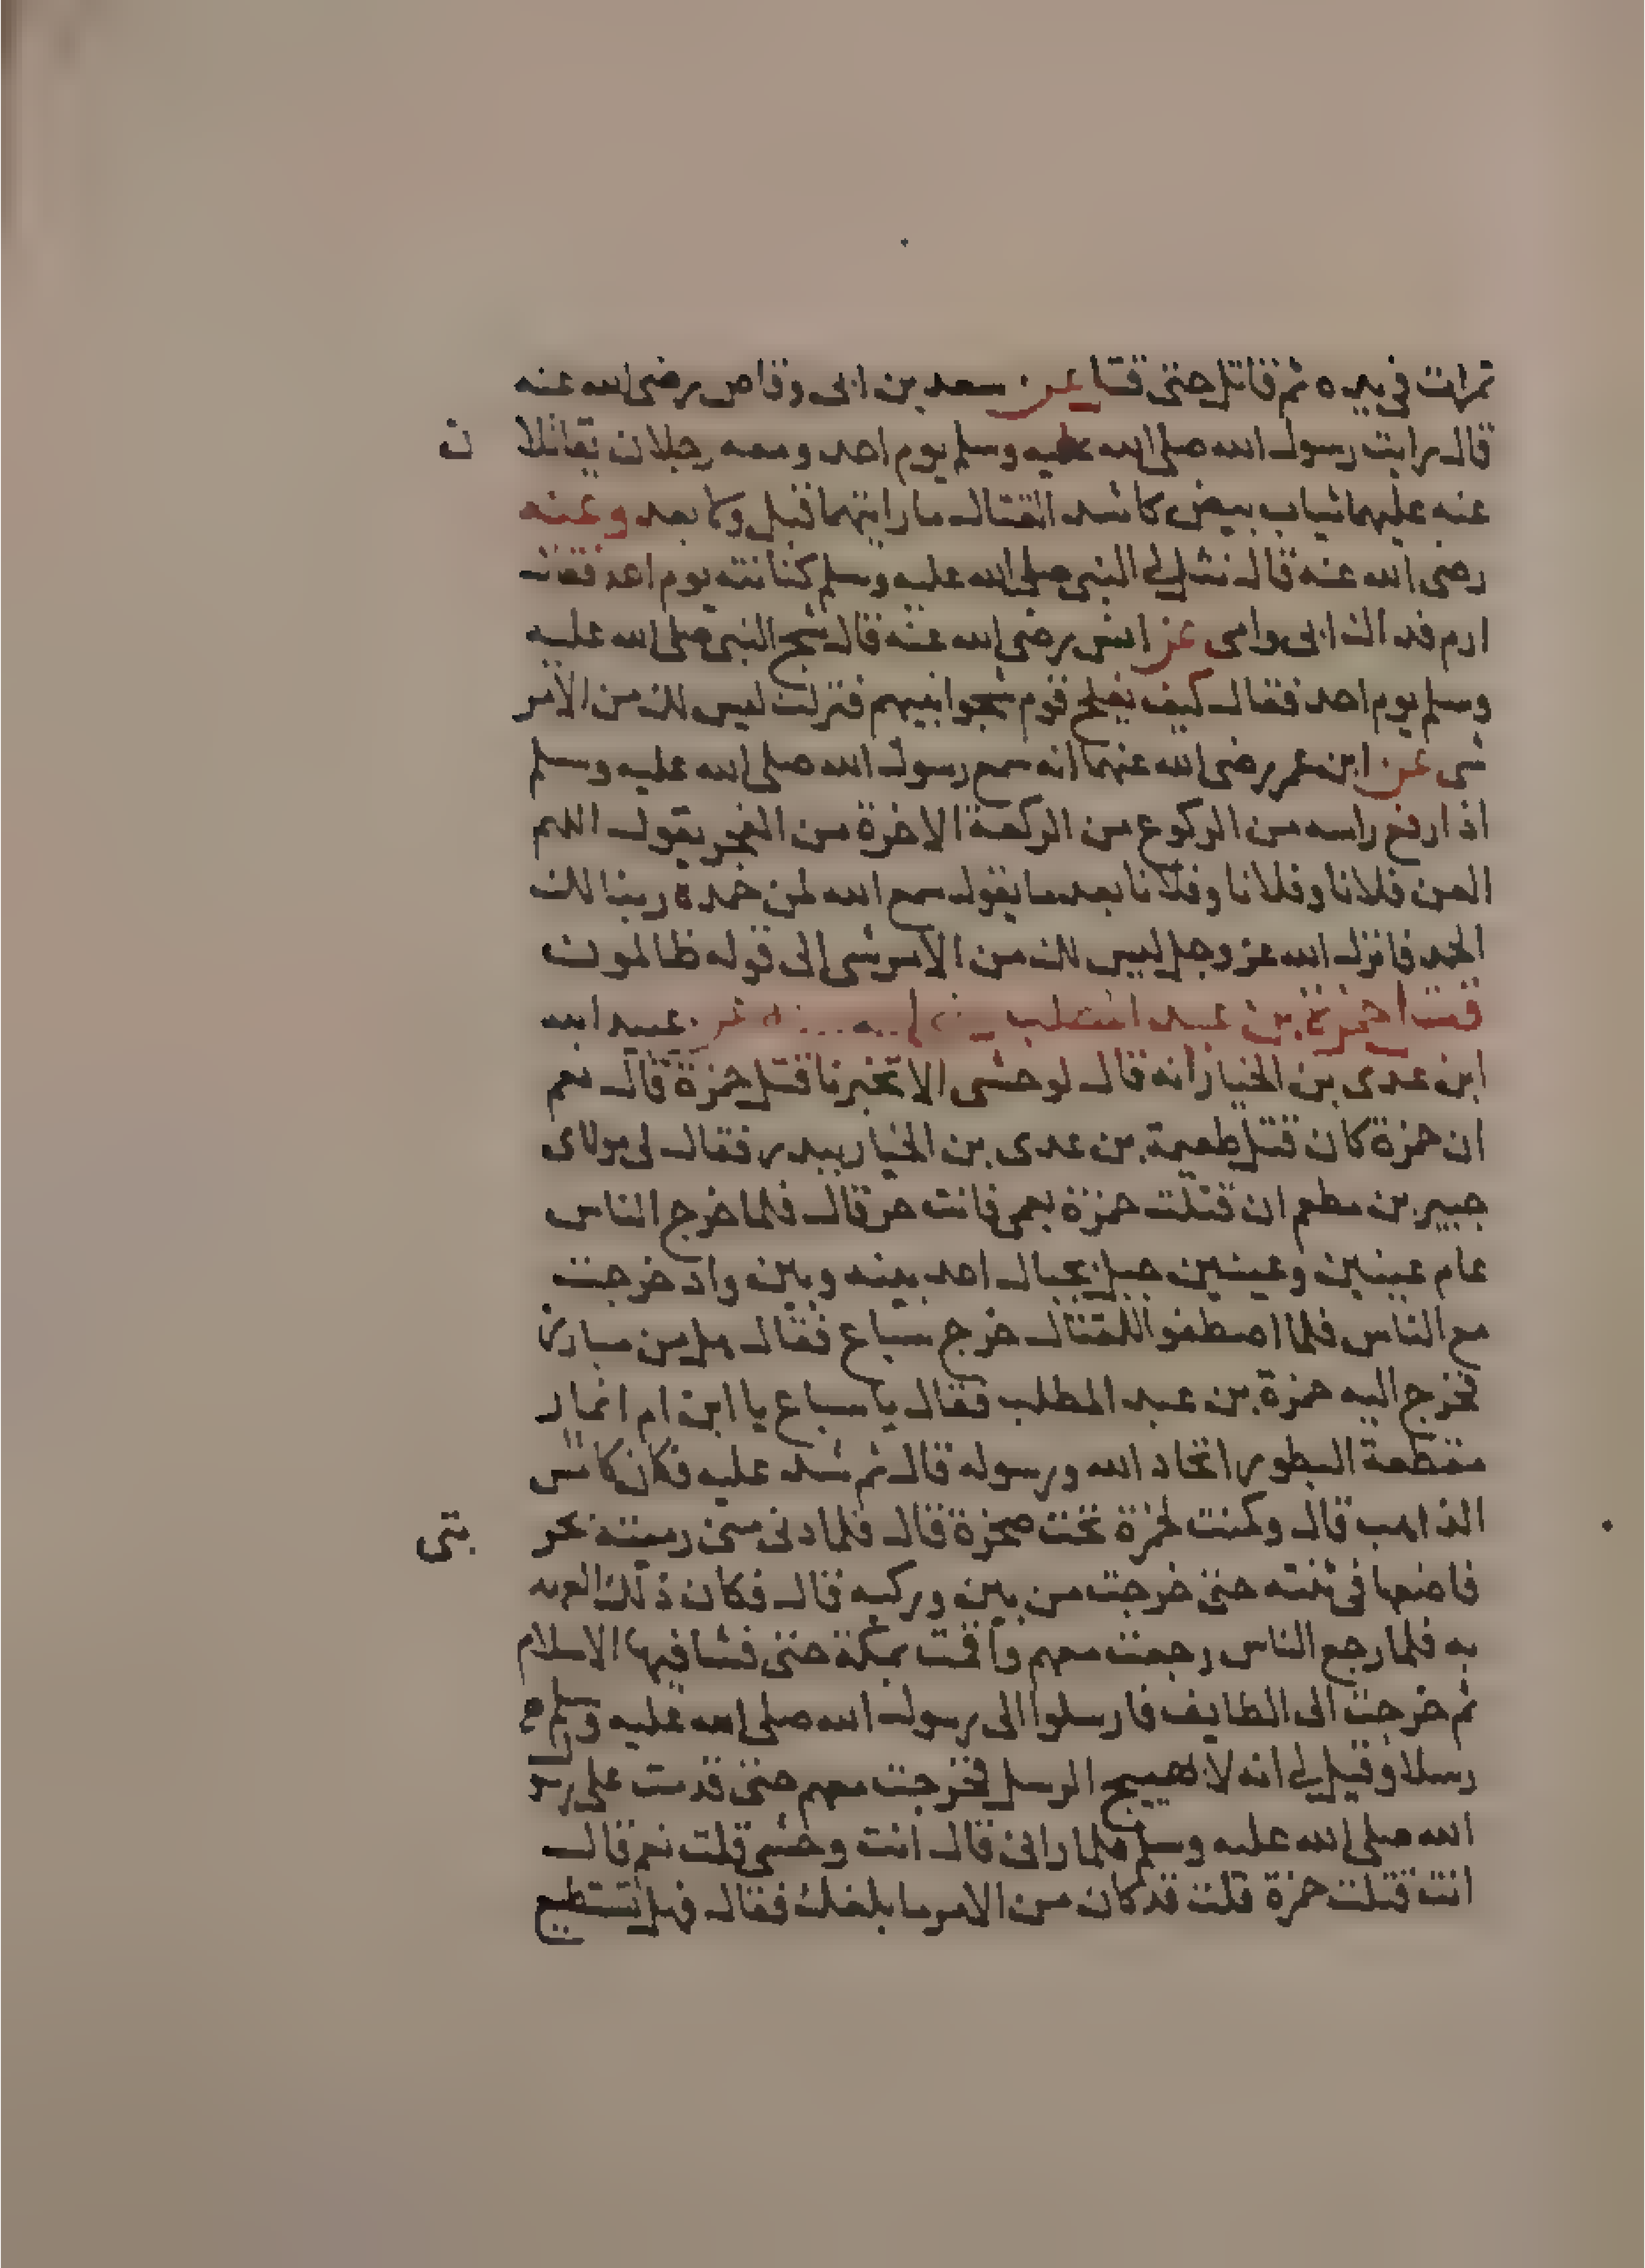 تمرات في يده ثم قاتل حتى قتل عن سعد بن ابى وقاص رضى الله عنه
قال رايت رسول الله صلى الله عليه وسلم يوم احد ومعه رجلان يقاتلا ن
عنه عليهما ثياب بيض كاشد القتال ما رايتهما قبل ولا بعد وعنه
رضى الله عنه قال نثل لي النبي صلى الله عليه وسلم كنانته يوم احد فقال
ارم فداك ابى وامى عن انس رضى الله عنه قال شج النبي صلى الله عليه
وسلم يوم احد فقال كيف يفلح قوم شجوا نبيهم فنزلت ليس لك من الامر
شى عن ابن عمر رضى الله عنهما انه سمع رسول الله صلى الله عليه وسلم
اذا رفع راسه من الركوع من الركعة الاخرة من الفجر يقول اللهم
العن فلانا وفلانا وفلانا بعد ما يقول سمع الله لمن حمده ربنا لك
الحمد فانزل الله عز وجل ليس لك من الامر شى الى قوله ظالمون
قتل حمزة بن عبد المطلب عن عبيد الله
ابن عدى بن الخيار انه قال لوحشى الا تخبرنا قتل حمزة قال نعم
ان حمزة كان قتل طعيمة بن عدى بن الخيار ببدر فقال لى مولاى
جبير بن مطعم ان قتلت حمزة بعمى فانت حر قال فلما خرج الناس
عام عينين وعينين جبل بحيال احد بينه وبين واد خرجت
مع الناس فلما اصطفوا للقتال خرج سباع فقال هل من مبارز
فخرج اليه حمزة بن عبد المطلب فقال يا سباع يا ابن ام انمار
مقطعة البظور اتحاد الله ورسوله قال ثم شد عليه فكان كامس
الذاهب قال وكمنت لحمزة تحت صخرة قال فلما دنى منى رميته بحر بتى
فاضعها فى ثنته حتى خرجت من بين وركيه قال فكان ذلك العهد
به فلما رجع الناس رجعت معهم واقمت بمكة حتى فشا فيها الاسلام
ثم خرجت الى الطايف فارسلوا الى رسول الله صلى الله عليه وسلم
رسلا وقيل لي انه لا يهيج الرسل فخرجت معهم حتى قدمت على رسول
الله صلى الله عليه وسلم فلما رانى قال انت وحشى قلت نعم قال
انت قتلت حمزة قلت قد كان من الامر ما بلغك فقال فهل تستطيع